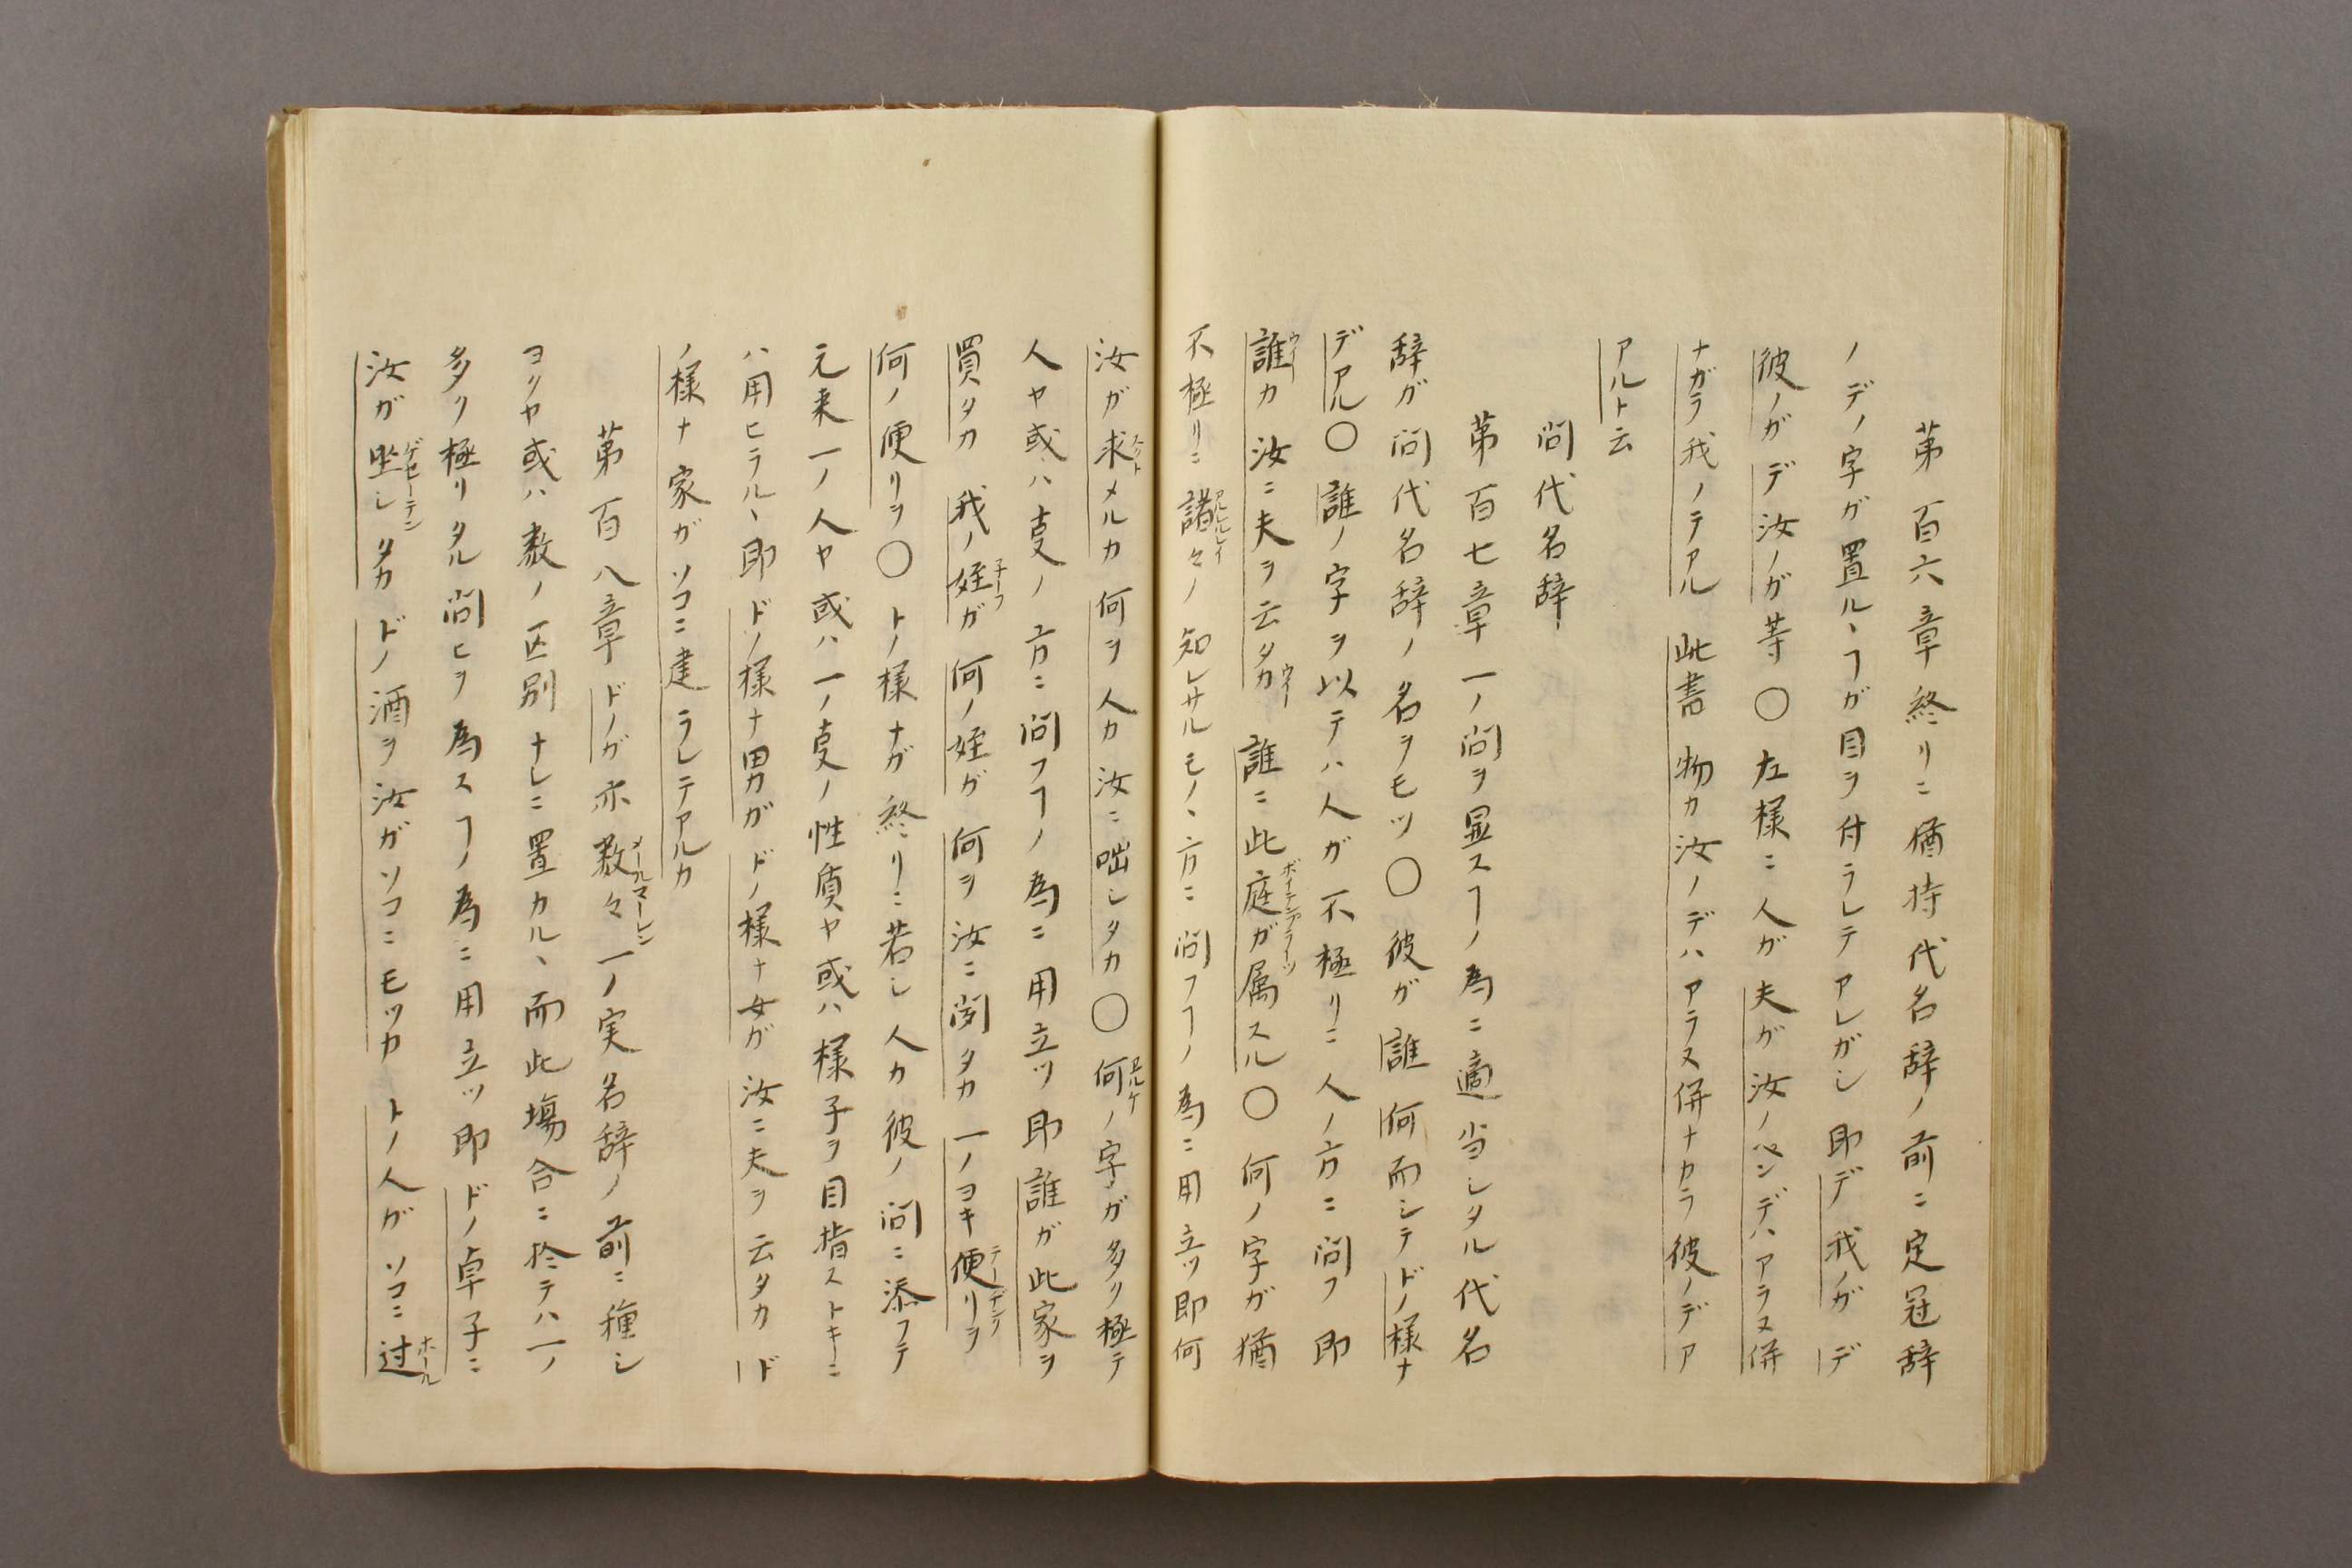 第百六章終リニ猶持代名辞ノ前ニ定冠辞
ノデノ字ガ置ル丶ヿガ目ヲ付ラレテアレガシ即デ我ノガデ
彼ノガデ汝ノガ等〇左様ニ人ガ夫ガ汝ノペンデハアラヌ併
ナガラ我ノテアル此書物カ汝ノデハアラヌ併ナカラ彼ノデア
アルト云
問代名辞
第百七章一ノ問ヲ显スヿノ為ニ適当シタル代名
辞ガ問代名辞ノ名ヲモツ〇彼ガ誰何而シテドノ様ナ
デアル〇誰ノ字ヲ以テハ人ガ不極リニ人ノ方ニ問フ即
誰カ汝ニ夫ヲ云タカ誰ニ此庭ガ属スル〇何ノ字ガ猶
不極リニ諸々ノ知レサルモノ丶方ニ問フヿノ為ニ用立ツ即何
汝ガ求メルカ何ヲ人カ汝ニ咄シタカ〇何ノ字ガ多リ極テ
人ヤ或ハ叓ノ方ニ問フヿノ為ニ用立ツ即誰ガ此家ヲ
買タカ我ノ姪ガ何ノ姪ガ何ヲ汝ニ問タカ一ノヨキ便リヲ
何ノ便リヲ〇トノ様ナガ終リニ若シ人カ彼ノ問ニ添フテ
元来一ノ人ヤ或ハ一ノ叓ノ性質ヤ或ハ様子ヲ目指ストキニ
ハ用ヒラル丶即ドノ様ナ男ガドノ様ナ女ガ汝ニ夫ヲ云タカド
ノ様ナ家ガソコニ建ラレテアルカ
第百八章ドノガ亦数々一ノ実名辞ノ前ニ種シ
ヨリヤ或ハ数ノ区別ナレニ置カル丶而此塲合ニ於テハ一ノ
多リ極リタル問ヒヲ為スヿノ為ニ用立ツ即ドノ卓子ニ
汝ガ坐シタカドノ酒ヲ汝ガソコニモツカトノ人ガソコニ过